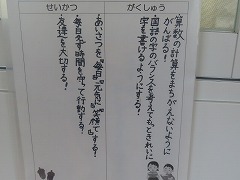 がくしゅう
・算数の計算をまちがえないように
がんばる!
・国語の字のバランスを考えて、もっときれいに
字を書けるようにする!
せいかつ
・あいさつを、毎日、元気に、笑顔でする!
・毎日必ず時間を守って行動する!
・友達を大切する!